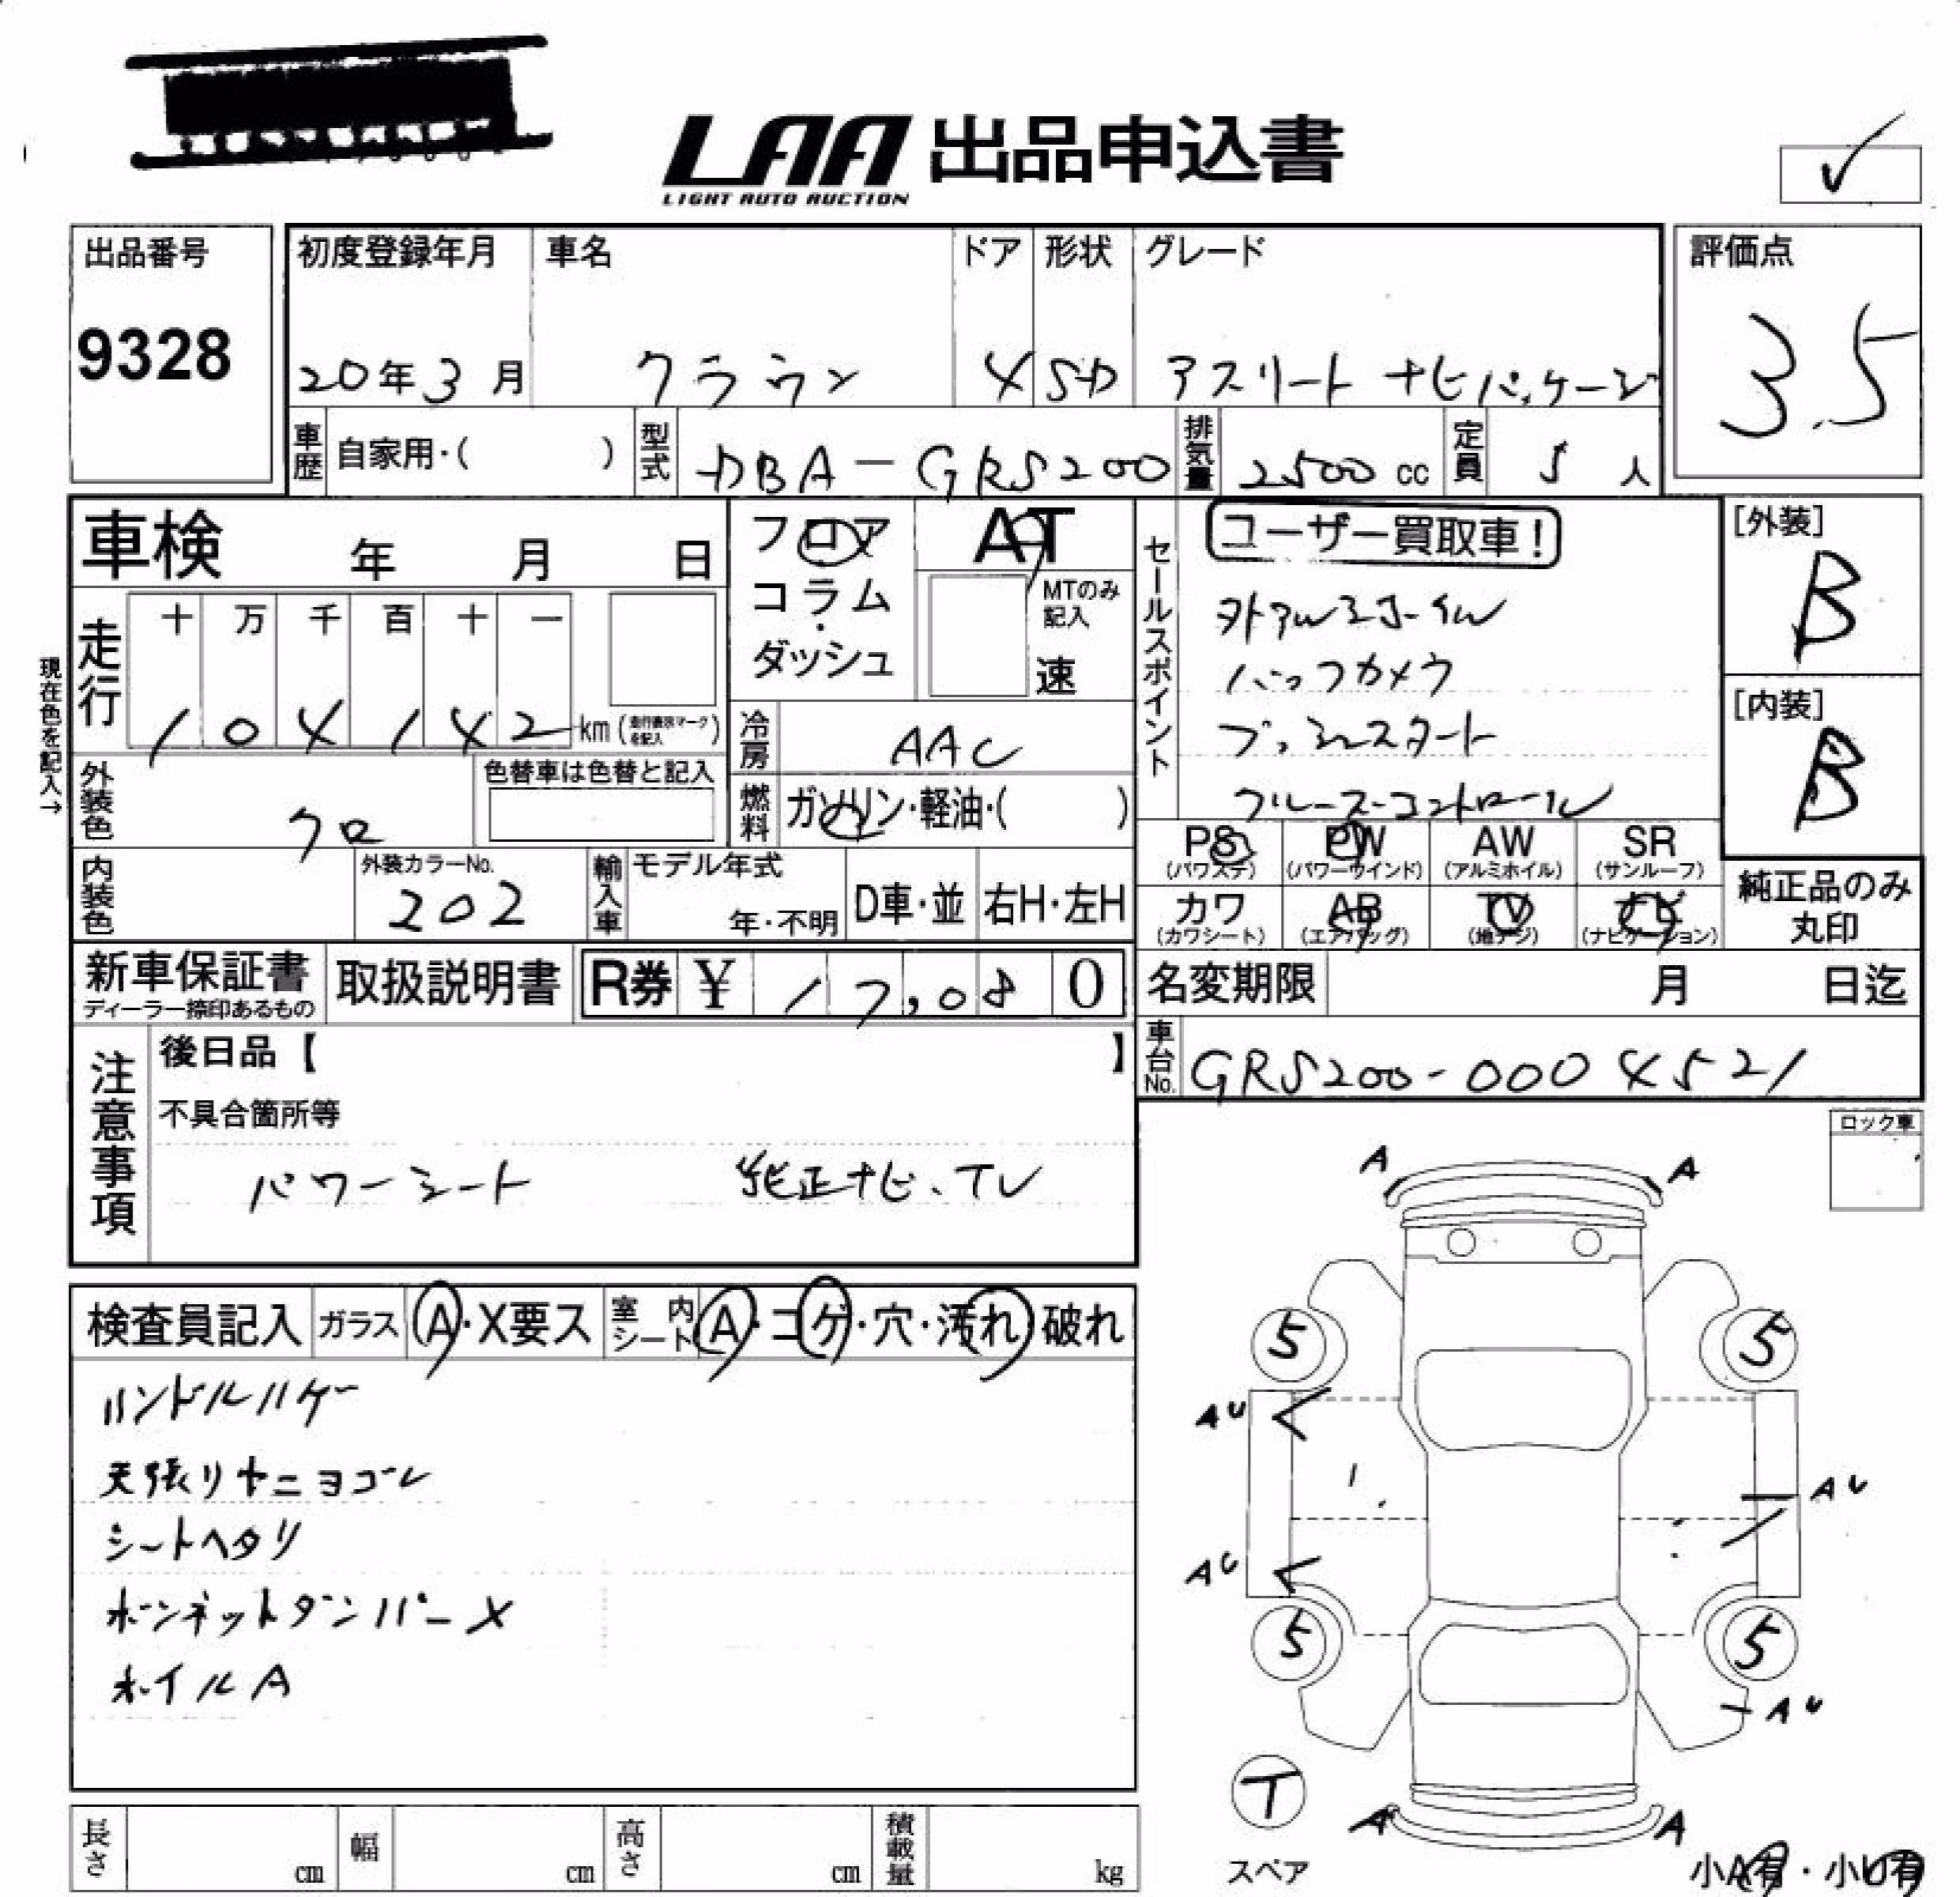 LAA 出品申込書
LIGHT AUTO AUCTION
出品番号
9328
初度登録年月
20年3月
車名
クラウン
ドア
4
形状
SD
グレード
アスリート ナビパッケージ
評価点
3.5
車歴
自家用・( )
型式
DBA-GRS200
排気量
2500 cc
定員
5 人
車検 年 月 日
フロア
コラム
・
ダッシュ
AT
MTのみ
記入
速
現在色を記入→
走行
十 万 千 百 十 一
1 0 4 1 4 2 km (走行表示マークを記入)
冷房
AAC
外装色
クロ
色替車は色替と記入
燃料
ガソリン・軽油・( )
内装色
外装カラーNo.
202
輸入車
モデル年式
年・不明
D車・並
右H・左H
セールスポイント
ユーザー買取車!
外アルミホイル
バックカメラ
プッシュスタート
クルーズコントロール
[外装]
B
[内装]
B
PS
(パワステ)
PW
(パワーウインド)
AW
(アルミホイル)
SR
(サンルーフ)
カワ
(カワシート)
AB
(エアバッグ)
TV
(地デジ)
ナビ
(ナビゲーション)
純正品のみ
丸印
新車保証書
ディーラー捺印あるもの
取扱説明書
R券 ¥ 17,080
名変期限 月 日迄
車台No.
GRS200-0004521
注意事項
後日品【 】
不具合箇所等
パワーシート 純正ナビ、TV
ロック車
検査員記入
ガラス
A・X要ス
室内シート
A・コゲ・穴・汚れ 破れ
ハンドルハゲ
天張リヤニヨゴレ
シートヘタリ
ボンネットダンパーX
ホイルA
A A
5 5
AU
AU
AU
5 5
AU
T
スペア
A A
小A有・小U有
長さ cm
幅 cm
高さ cm
積載量 kg